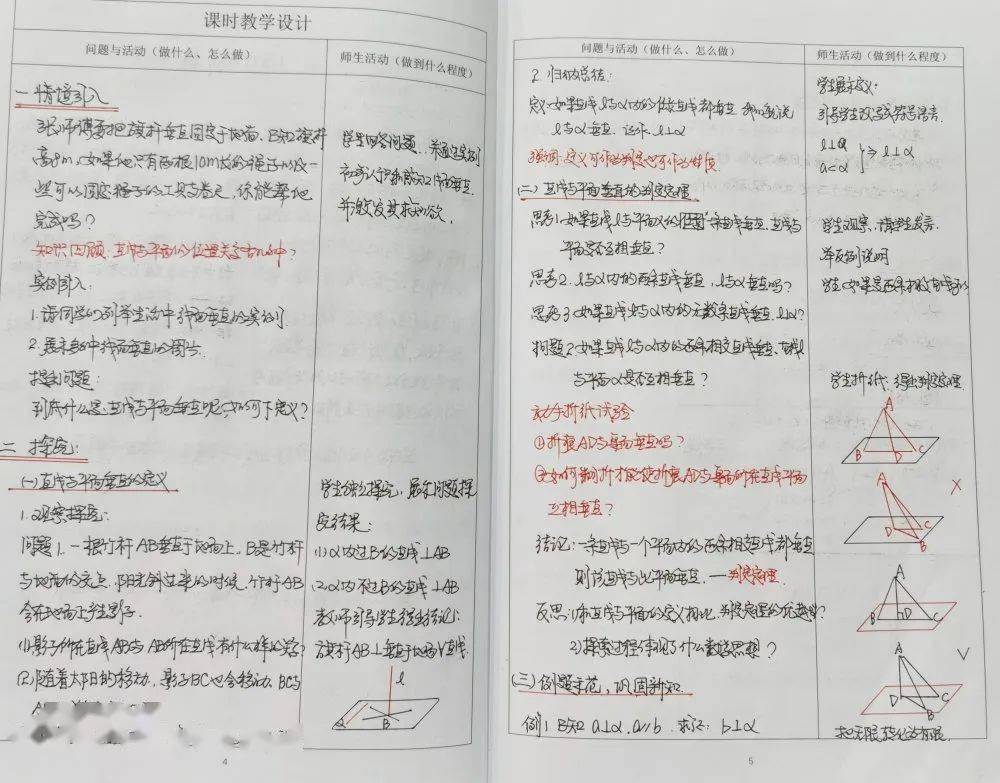 课时教学设计
问题与活动（做什么、怎么做）
师生活动（做到什么程度）
一 情境引入
张师傅要把旗杆垂直固定于地面，已知旗杆
高8m，如果他只有两根10m长的绳子以及一
些可以固定绳子的工具与卷尺，你能帮他
完成吗？
知识回顾：直线与平面的位置关系有几种？
实例引入：
1.请同学们列举生活中线面垂直的实例.
2.展示生活中线面垂直的图片.
提出问题：
到底什么是直线与平面垂直呢，如何下定义？
二 探究：
(一)直线与平面垂直的定义
1.观察探究：
问题1.一根竹杆AB垂直于地面上，B是竹杆
与地面的交点，阳光斜过来的时候，竹杆AB
会在地面上产生影子.
(1)影子所在直线AB与AB所在直线有什么样的关系？
(2)随着太阳的移动，影子BC也会移动，BC与
学生回答问题，并通过实例
初步认识和感知线面垂直，
并激发其求知欲.
学生独立探究，展示问题探
究结果：
(1)α内过B的直线⊥AB
(2)α内不过B的直线⊥AB
教师引导学生得出结论：
旗杆AB⊥垂直于地面∀直线.
l
α
B
4
问题与活动（做什么、怎么做）
师生活动（做到什么程度）
2.归纳总结：
定义：如果直线l与α内的任意直线都垂直，我们就说
l与α垂直，记作：l⊥α
强调：定义可作为判定也可作为性质
(二)直线与平面垂直的判定定理
思考1.如果直线l与平面α内的一条直线垂直，直线与
平面是否互相垂直？
思考2.l与α内的两条直线垂直，l与α垂直吗？
思考3.如果直线l与α内的无数条直线垂直，l⊥α？
问题2.如果直线l与α内的两条相交直线垂直，直线l
与平面α是否互相垂直？
动手折纸试验
①折痕AD与桌面垂直吗？
②如何翻折才能使折痕AD与桌面所在直线平面
互相垂直？
结论：一条直线与一个平面内的两条相交直线都垂直
则该直线与此平面垂直.—判定定理
反思：1)和直线与平面的定义相比，判定定理的优越性？
2)探索过程体现了什么数学思想？
(三)例题示范，巩固新知
例1 已知 a⊥α，a∥b 求证：b⊥α
学生展示定义.
引导学生改写成符号语言.
l⊥a
a⊂α
⇒ l⊥α
学生观察，请学生发言.
举反例说明
学生折纸，得出判定定理
A
B
D
C
A
D
C
B
×
A
B
D
C
A
D
C
B
√
把无限转化为有限.
5